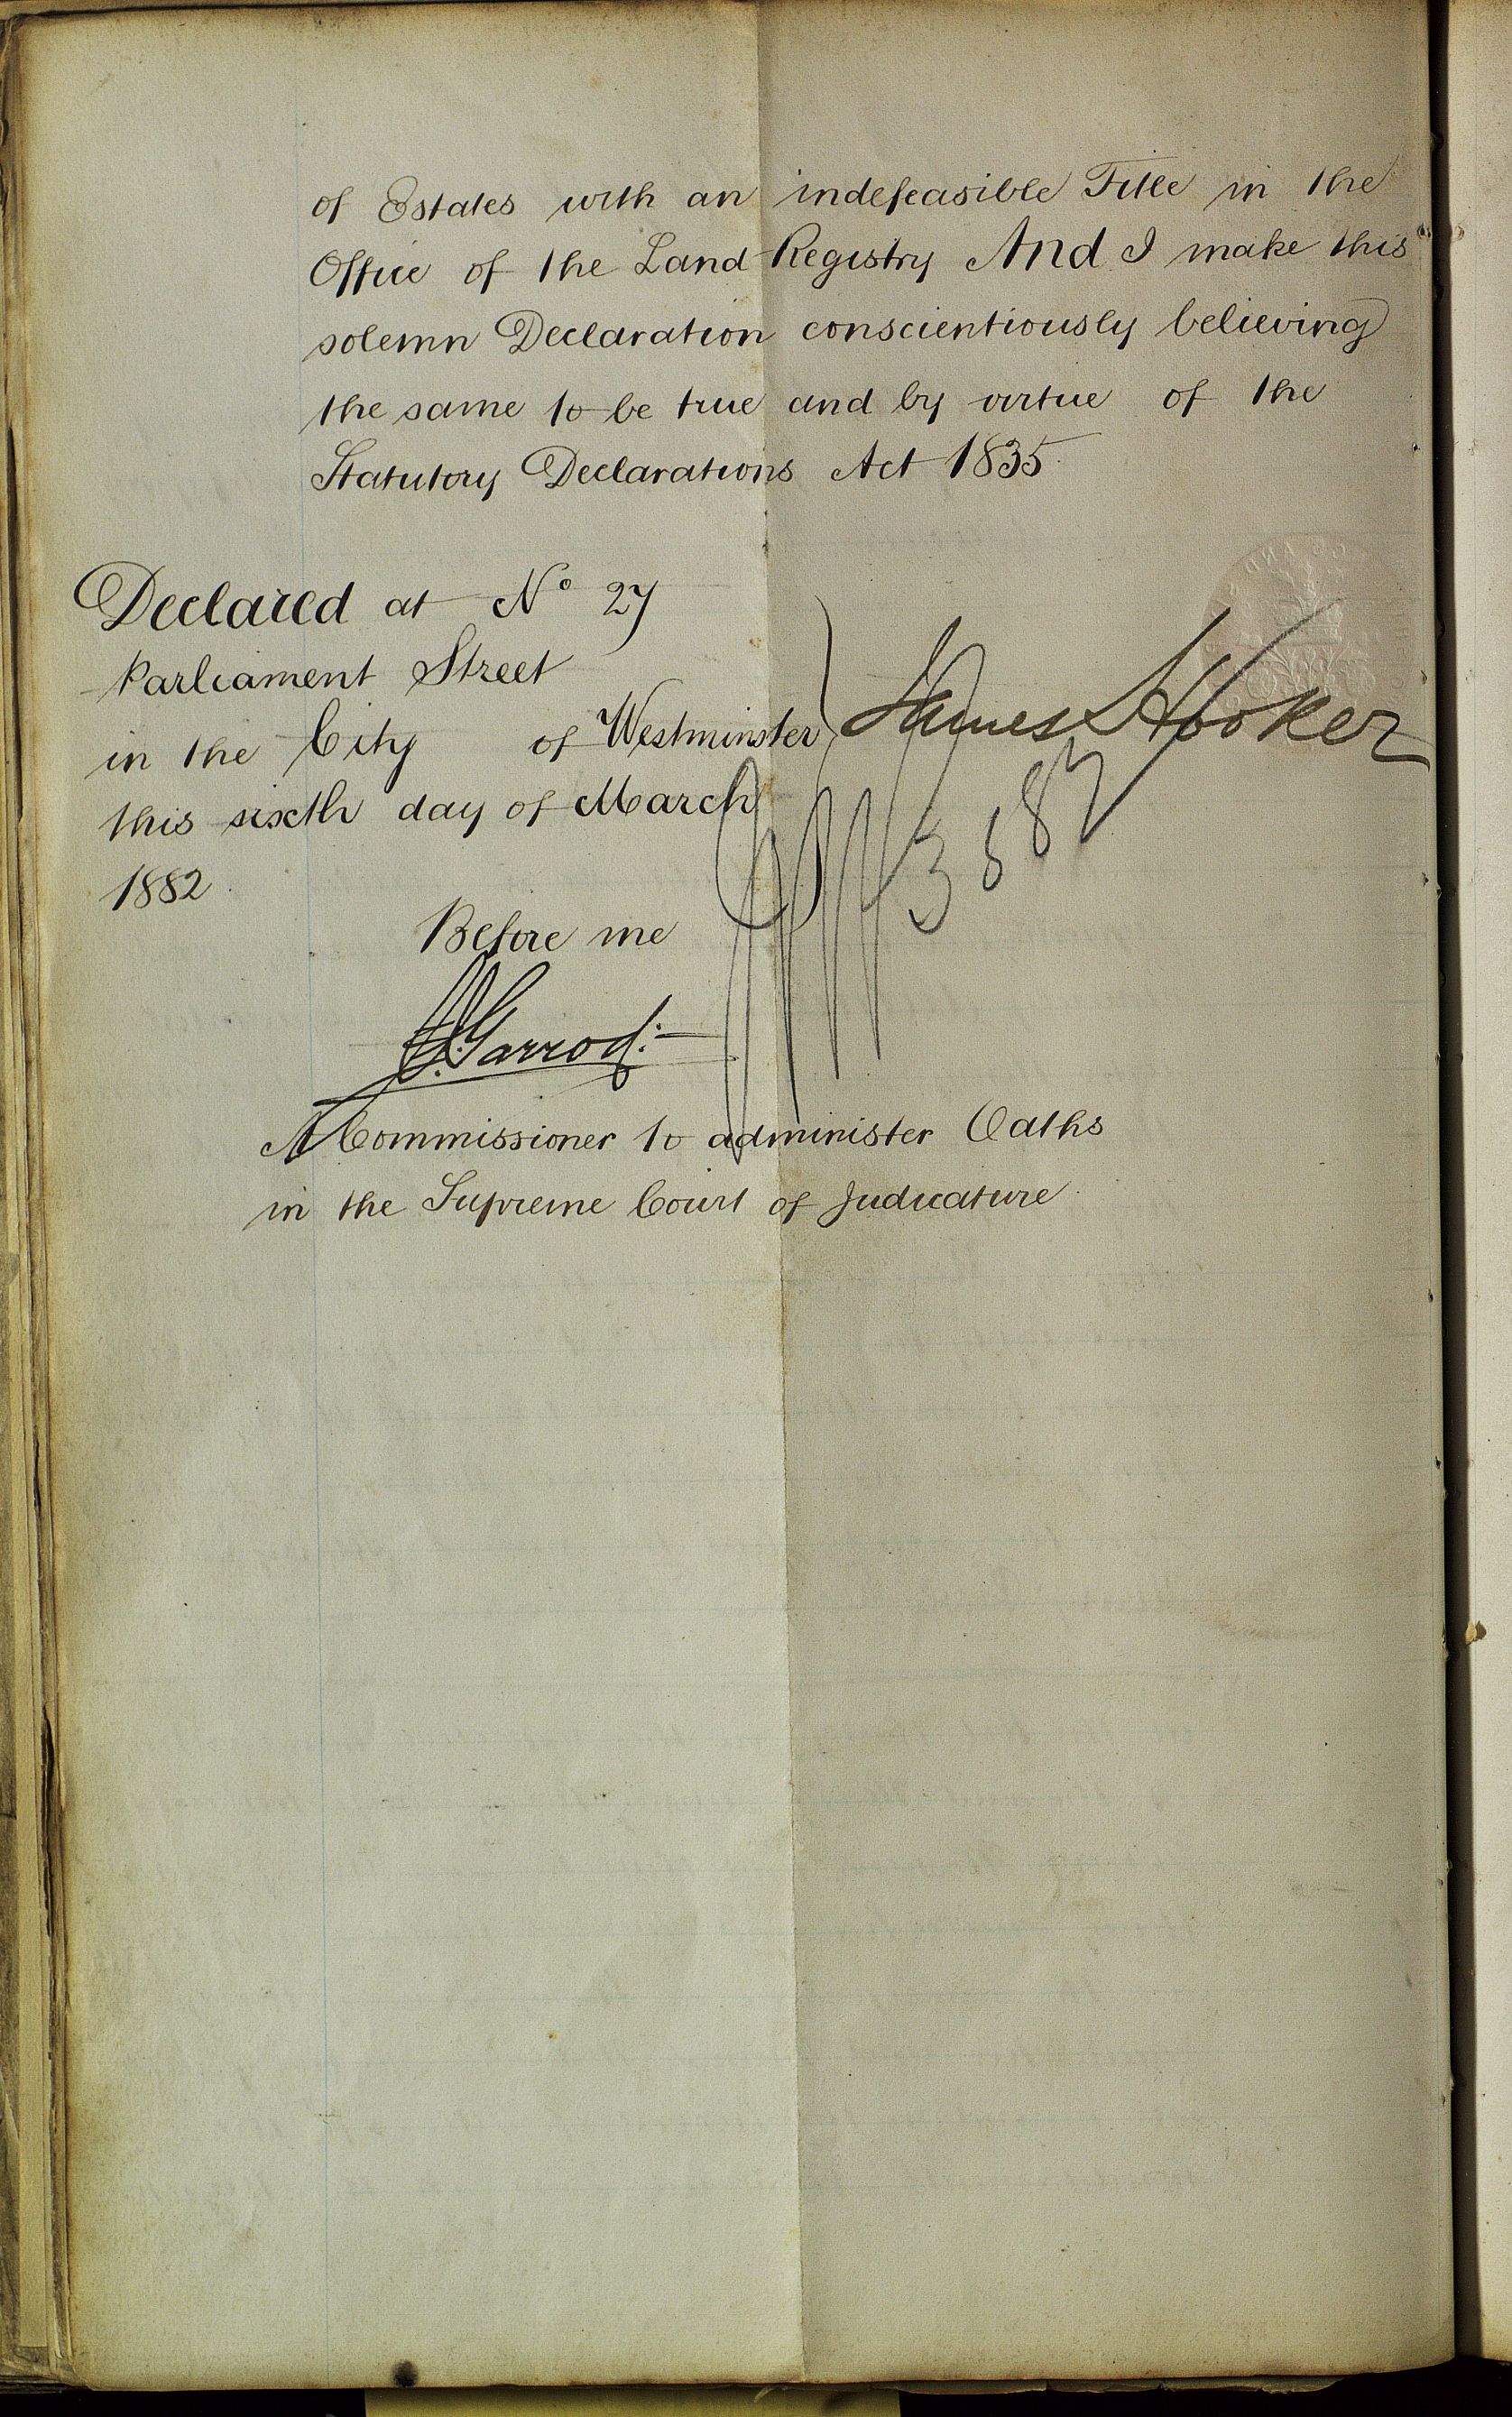 of Estates with an indefeasible Title in the
Office of the Land Registry And I make this
solemn Declaration conscientiously believing
the same to be true and by virtue of the
Statutory Declarations Act 1835.
Declared at No 27
Parliament Street
in the City of Westminster
this sixth day of March
1882.
James Hooker
Before me
Garrod
A Commissioner to administer Oaths
in the Supreme Court of Judicature.